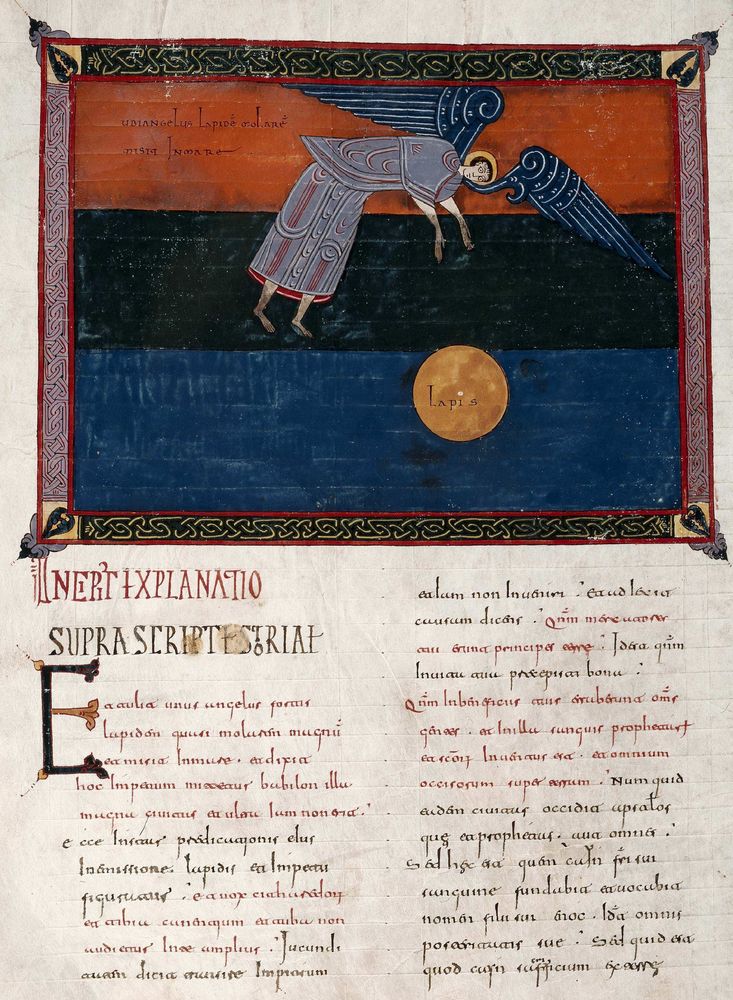 UBI ANGELUS LAPIDĒ MOLARĒ
MISIT IN MARE
Lapis
INCPT EXPLANATIO
SUPRASCRIPTE STORIAE
Et tulit unus angelus fortis
lapidem quasi molarem magnū
et misit in mare . et dixit
hoc impetum mittetur babilon illa
magna civitas et ultra iam non erit .
ecce
predicationis eius
inmissione lapidis et impetu
figuratur : et vox
et tibia canentium et tuba non
audietur in ea amplius . Jucundi
tatem dicit transire impiorum
non inveniri .
causam dicens : Qm̄ mercatores
tui erant principes terre : Id est qm̄
in vita tua percepisti bona .
Qm̄ in beneficiis tuis oms̄
gentes . et in illa sanguis prophetarum
et scōr inventus est . et omnium
occisorum super terram : Numquid
eadem civitas occidit apstlos
que et prophetas . aut omnes :
Sed hęc est quam cayn fr̄i sui
sanguine fundabit et vocabit
nomen filii sui enoc . Id est omnis
posteritatis sue : Sed quid est
quod cayn